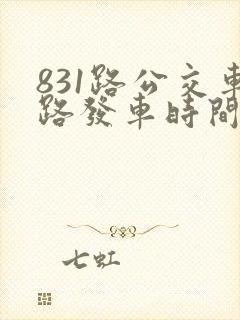 831路公交車
路發車時間
七虹